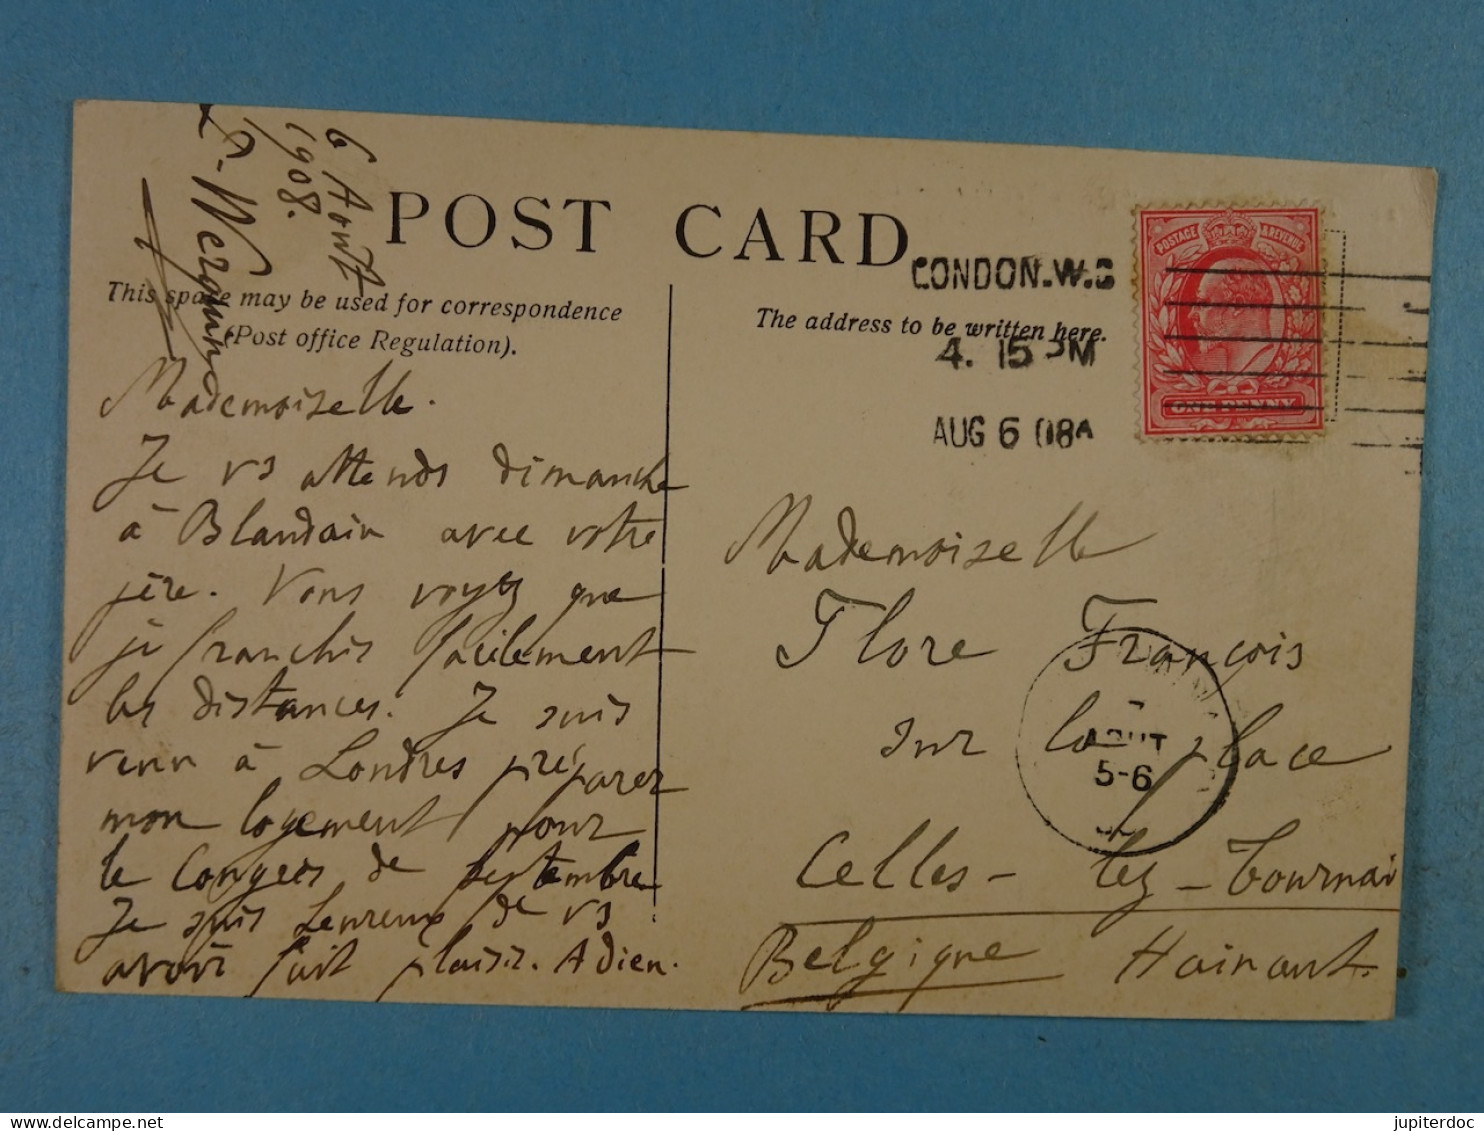 6 Août
1908.
POST CARD
This space may be used for correspondence
(Post office Regulation).
The address to be written here.
LONDON.W.C
4. 15 PM
AUG 6 08
POSTAGE & REVENUE
ONE PENNY
Mademoiselle.
Je vs attends dimanche
à Blandain avec votre
père. Vous voyez que
je franchis facilement
les distances. Je suis
venu à Londres préparer
mon logement pour
le Congrès de septembre
Je suis heureux de vs
avoir fait plaisir. Adieu.
Mademoiselle
Flore François
sur la place
Celles-lez-Tournai
Belgique Hainaut.
7
AOUT
5-6
jupiterdoc